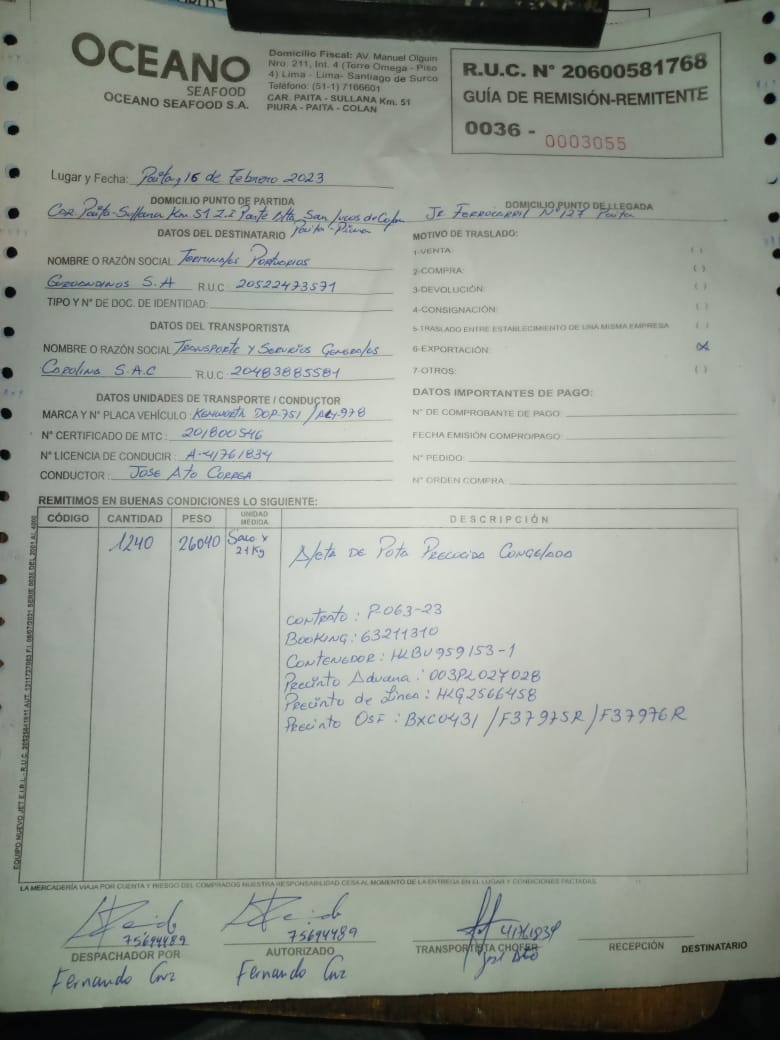 OCEANO
SEAFOOD
OCEANO SEAFOOD S.A.
Domicilio Fiscal: AV. Manuel Olguin
Nro. 211, Int. 4 (Torre Omega - Piso
4) Lima - Lima- Santiago de Surco
Teléfono: (51-1) 7166601
CAR. PAITA - SULLANA Km. 51
PIURA - PAITA - COLAN
R.U.C. N° 20600581768
GUÍA DE REMISIÓN-REMITENTE
0036 - 0003055
Lugar y Fecha: Paita, 16 de Febrero 2023
DOMICILIO PUNTO DE PARTIDA
Car Paita-Sullana Km. 51 Z.I Parte Alta San Lucas de Colan
Paita - Piura
DOMICILIO PUNTO DE LLEGADA
Jr Ferrocarril N°127 Paita
DATOS DEL DESTINATARIO
NOMBRE O RAZÓN SOCIAL Terminales Portuarios
Euroandinos S.A R.U.C: 20522473571
TIPO Y N° DE DOC. DE IDENTIDAD:
DATOS DEL TRANSPORTISTA
NOMBRE O RAZÓN SOCIAL Transporte y Servicios Generales
Carolina S.A.C R.U.C: 20483885581
DATOS UNIDADES DE TRANSPORTE / CONDUCTOR
MARCA Y N° PLACA VEHÍCULO: Kenworth DOP-751 /
N° CERTIFICADO DE MTC: 201800546
N° LICENCIA DE CONDUCIR: A-41761834
CONDUCTOR: Jose Ato Correa
MOTIVO DE TRASLADO:
1-VENTA: ( )
2-COMPRA: ( )
3-DEVOLUCIÓN: ( )
4-CONSIGNACIÓN: ( )
5-TRASLADO ENTRE ESTABLECIMIENTO DE UNA MISMA EMPRESA ( )
6-EXPORTACIÓN: (X)
7-OTROS: ( )
DATOS IMPORTANTES DE PAGO:
N° DE COMPROBANTE DE PAGO:
FECHA EMISIÓN COMPRO/PAGO:
N° PEDIDO:
N° ORDEN COMPRA:
REMITIMOS EN BUENAS CONDICIONES LO SIGUIENTE:
CÓDIGO CANTIDAD PESO UNIDAD MEDIDA DESCRIPCIÓN
1240 26040 Saco x 21Kg Aleta de Pota Precocida Congelada
Contrato: P-063-23
Booking: 63211310
Contenedor: HLBU959153-1
Precinto Aduana: 003PL027028
Precinto de Linea: HLG2566458
Precinto OSF: BXC0431 / F37975R / F37976R
LA MERCADERÍA VIAJA POR CUENTA Y RIESGO DEL COMPRADOS NUESTRA RESPONSABILIDAD CESA AL MOMENTO DE LA ENTREGA EN EL LUGAR Y CONDICIONES PACTADAS.
75694489
DESPACHADOR POR
Fernando Cruz
75694489
AUTORIZADO
Fernando Cruz
41761834
TRANSPORTISTA CHOFER
José Ato
RECEPCIÓN DESTINATARIO